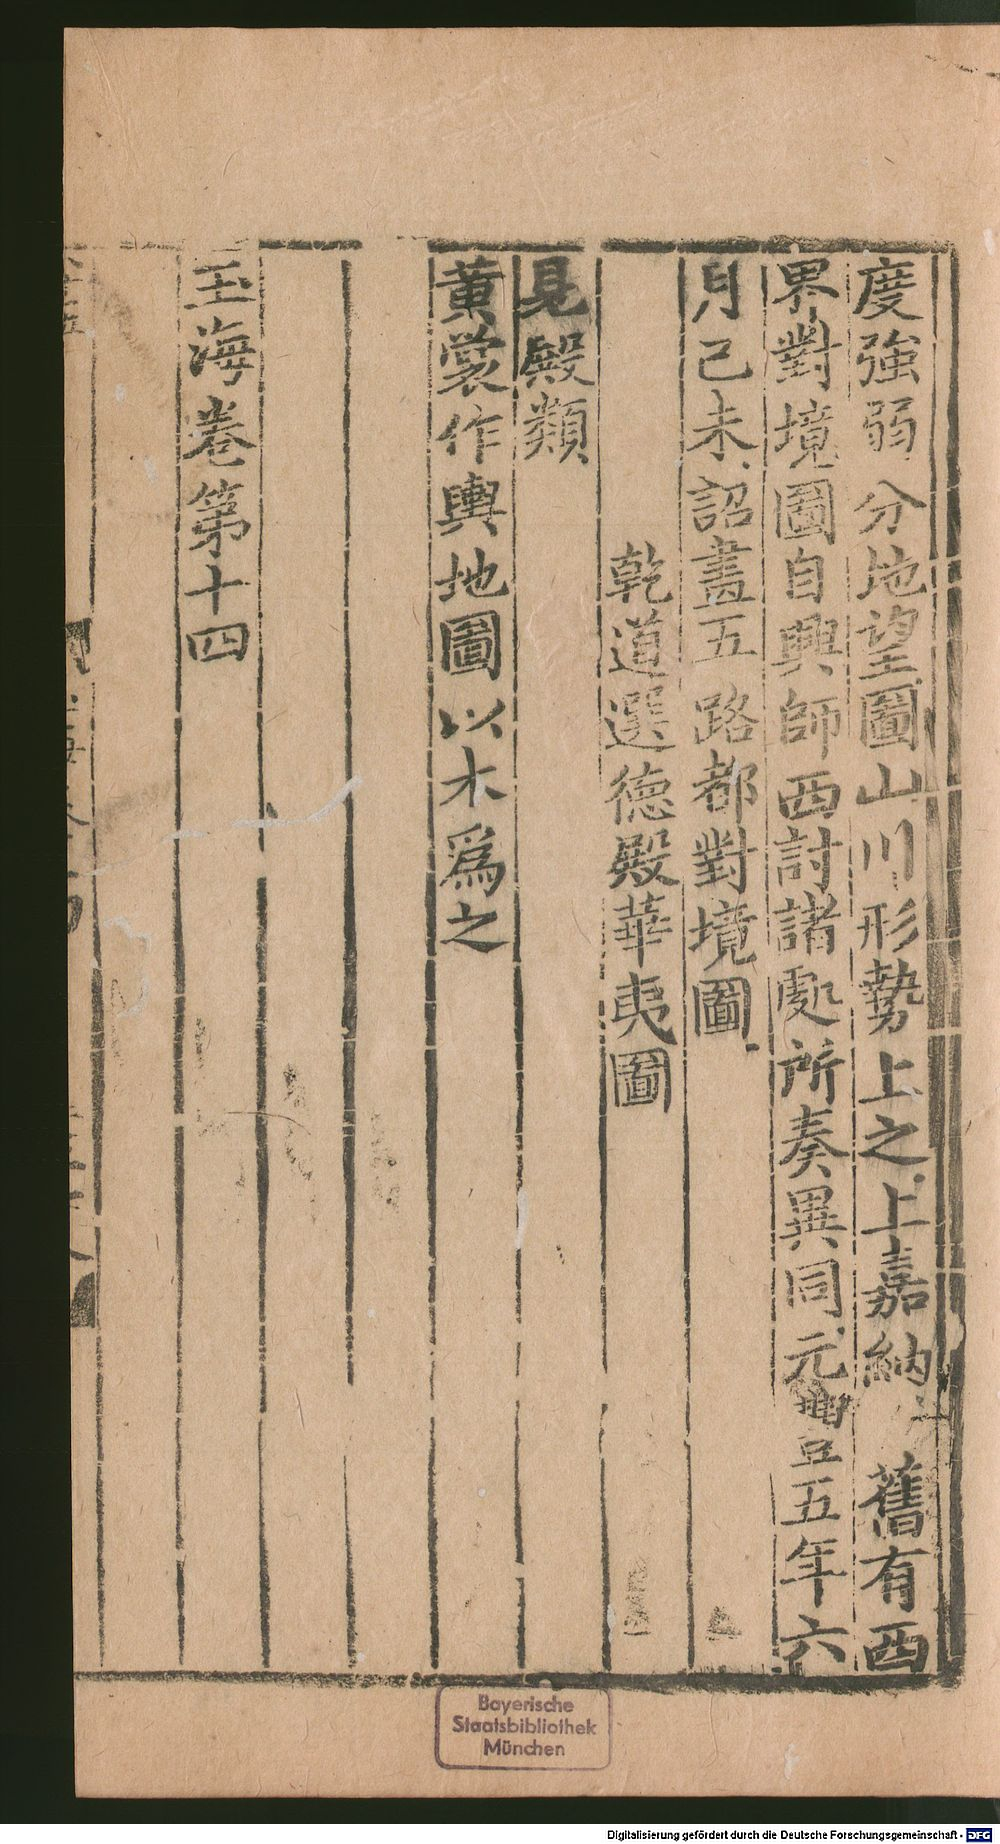 度強弱分地望圖山川形勢上之上嘉納 舊有西
界對境圖自興師西討諸處所奏異同元豐五年六
月己未詔畫五路都對境圖
乾道選德殿華夷圖
見殿類
黄裳作輿地圖以木爲之
玉海卷第十四
Bayerische
Staatsbibliothek
München
Digitalisierung gefördert durch die Deutsche Forschungsgemeinschaft - DFG